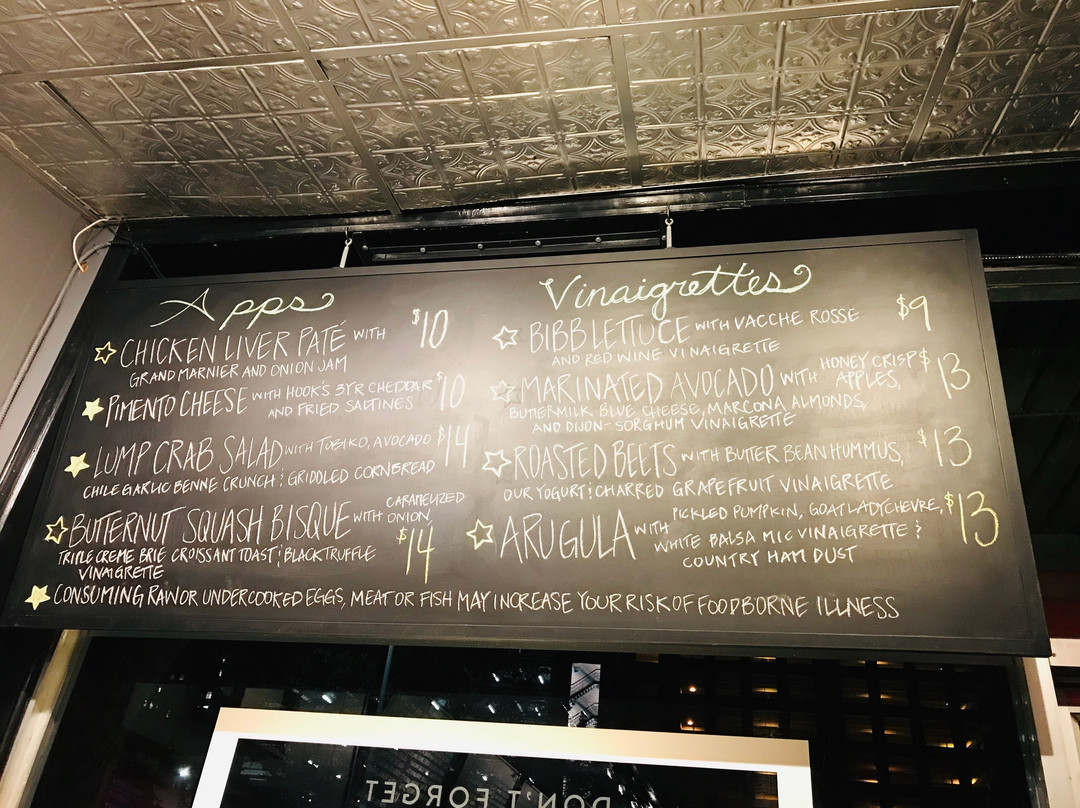 Apps
CHICKEN LIVER PATÉ WITH $10
GRAND MARNIER AND ONION JAM
PIMENTO CHEESE WITH HOOK'S 3YR CHEDDAR $10
AND FRIED SALTINES
LUMP CRAB SALAD WITH TOBIKO, AVOCADO $14
CHILE GARLIC BENNE CRUNCH & GRIDDLED CORNBREAD
BUTTERNUT SQUASH BISQUE WITH CARAMELIZED
ONION, $14
TRIPLE CREME BRIE CROISSANT TOAST & BLACK TRUFFLE
VINAIGRETTE
Vinaigrettes
BIBB LETTUCE WITH VACCHE ROSSE $9
AND RED WINE VINAIGRETTE
MARINATED AVOCADO WITH HONEY CRISP $13
APPLES,
BUTTERMILK BLUE CHEESE, MARCONA ALMONDS,
AND DIJON-SORGHUM VINAIGRETTE
ROASTED BEETS WITH BUTTER BEAN HUMMUS, $13
OUR YOGURT & CHARRED GRAPEFRUIT VINAIGRETTE
ARUGULA WITH PICKLED PUMPKIN, GOAT LADY CHEVRE, $13
WHITE BALSAMIC VINAIGRETTE &
COUNTRY HAM DUST
CONSUMING RAW OR UNDERCOOKED EGGS, MEAT OR FISH MAY INCREASE YOUR RISK OF FOODBORNE ILLNESS
DON'T FORGET